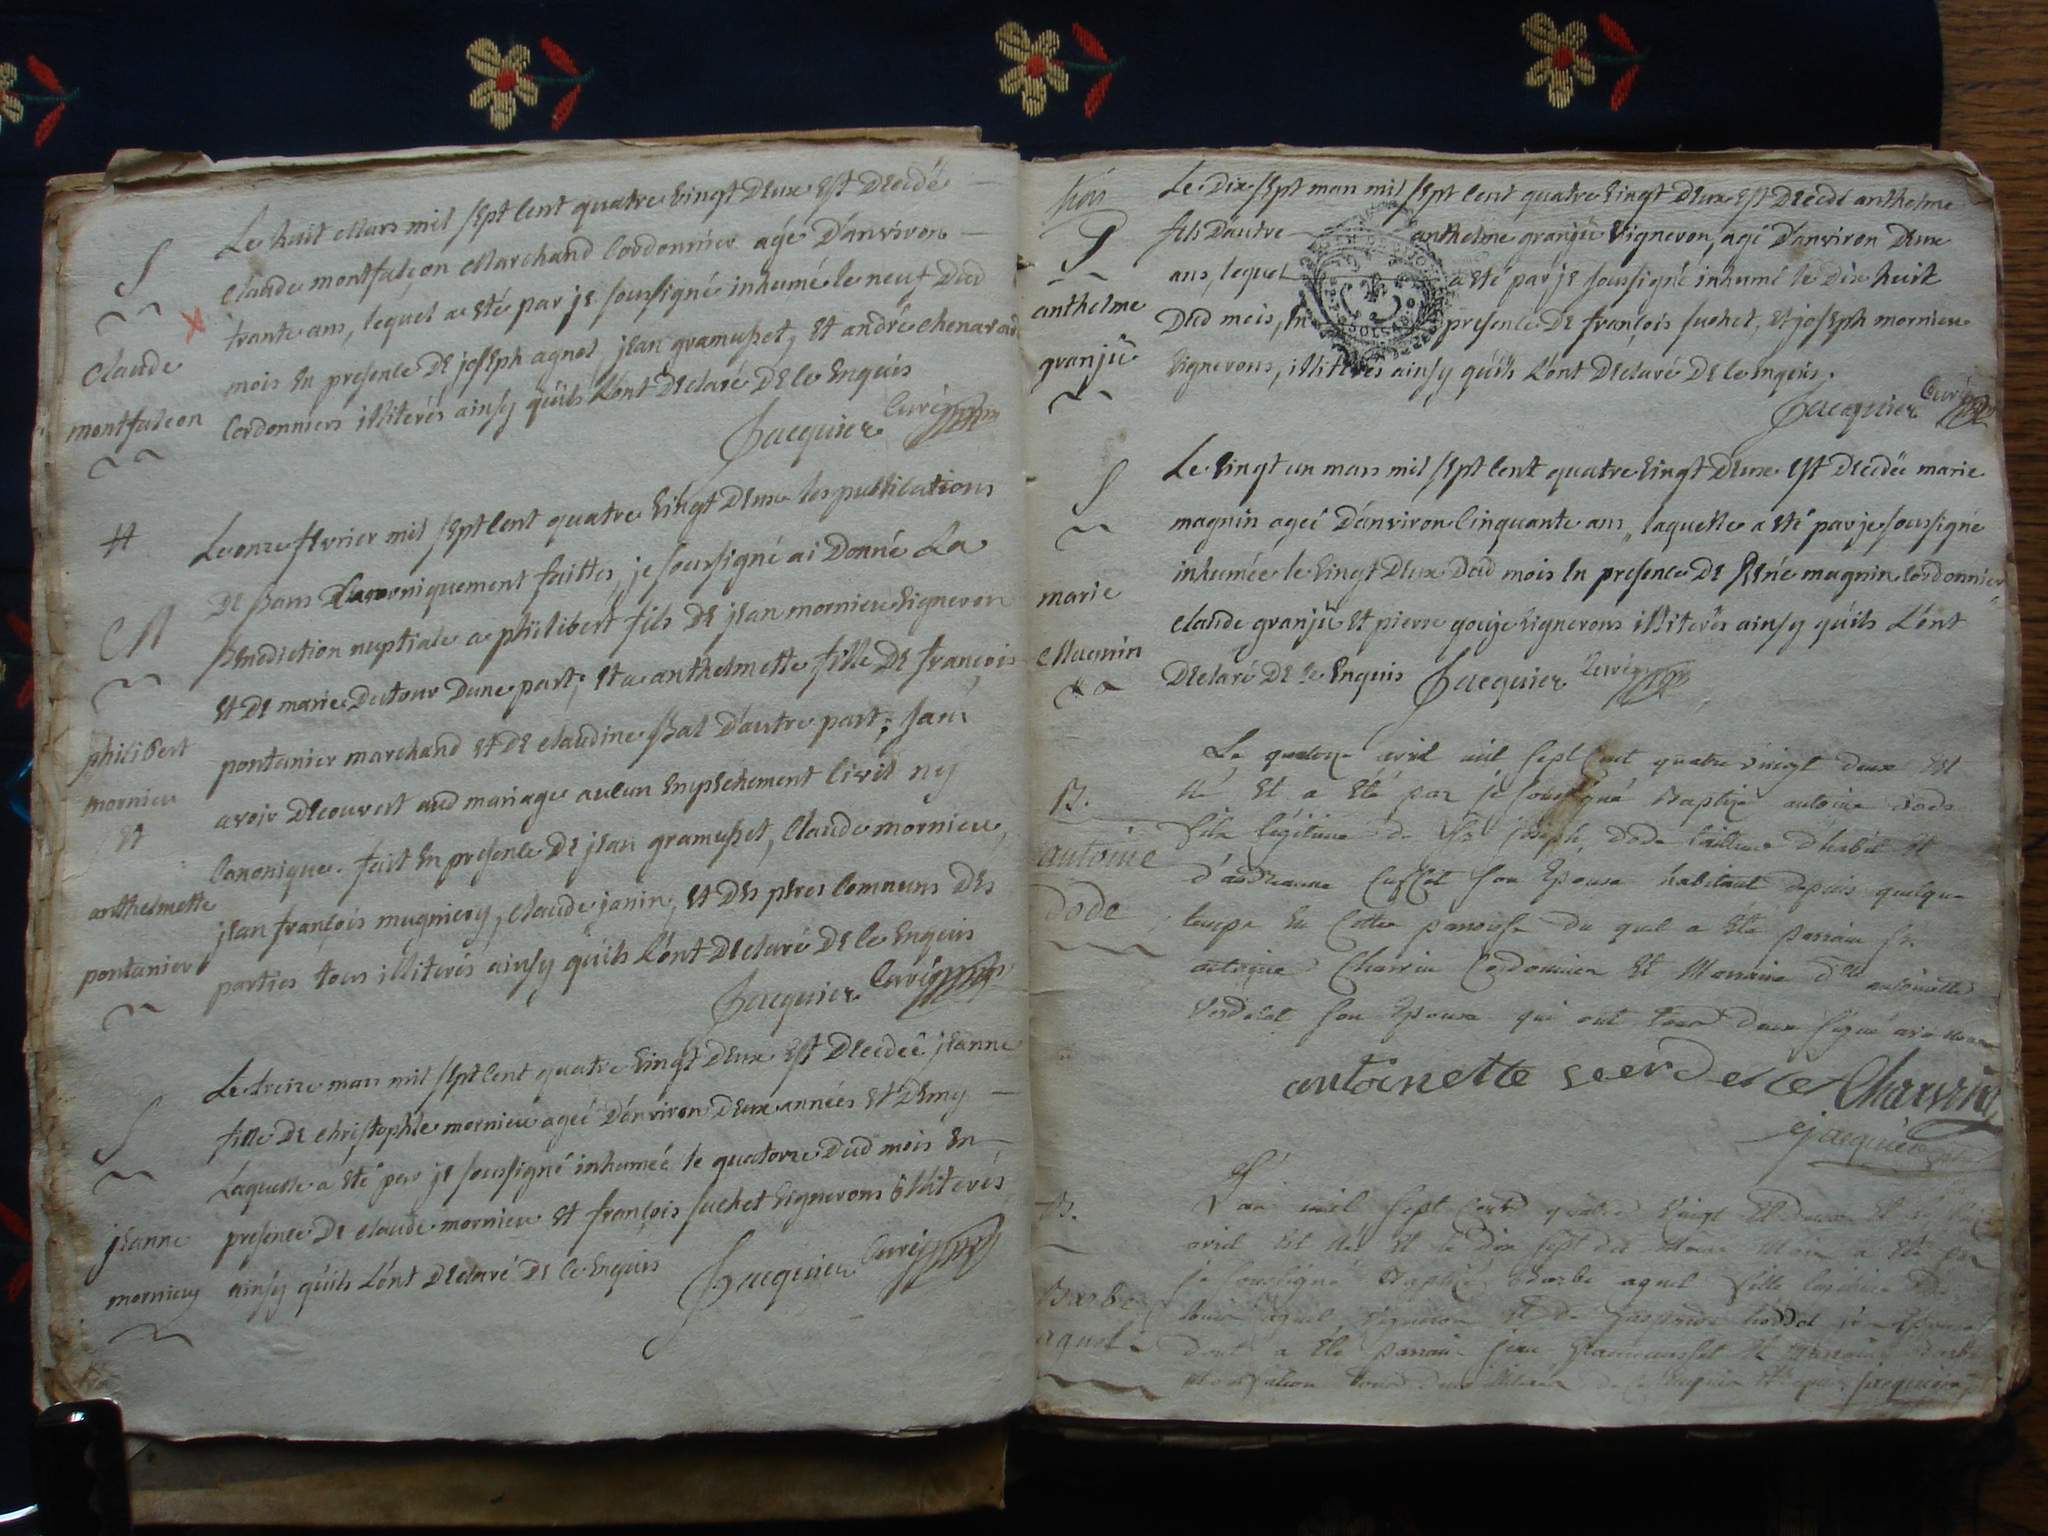 S
claude
montfalcon
Le huit Mars mil sept cent quatre vingt deux est decidé
claude montfalcon Marchand Cordonnier agé d'anviron
trante ans, lequel a eté par je soussigné inhumé le neuf dud
mois en presence de joseph agnel, jean gramusset, et andré chenavard
Cordonniers illiterés ainsy qu'ils l'ont declaré de ce enquis
Jacquier Curé
#
M
philibert
mornieu
et
anthelmette
pontanier
Le onze fevrier mil sept cent quatre vingt deux les publications
de bans canoniquement faittes, je soussigné ai donné La
benediction nuptiale a philibert fils de jean mornieu vigneron
et de marie dutour dune part; et a anthelmette fille de françois
pontanier marchand et de claudine bal d'autre part; sans
avoir decouvert aud mariage aucun empechement civil ny
canonique. fait en presence de jean gramusset, Claude mornieu,
jean françois mugniery, claude janin, et des peres communs des
parties tous illiterés ainsy qu'ils l'ont declaré de ce enquis
Jacquier Curé
S
jeanne
morniery
Le treize mars mil sept cent quatre vingt deux est decideé jeanne
fille de christophle mornieu ageé d'anviron deux années et demy
Laquelle a eté par je soussigné inhumeé le quatorze dud mois en
presence de claude mornieu et françois suchet vignerons illiterés
ainsy qu'ils l'ont declaré de ce enquis Jacquier Curé
S
anthelme
granjü
Le dix sept mars mil sept cent quatre vingt deux est decidé anthelme
fils d'autre anthelme granjü vigneron, agé d'anviron deux
ans, lequel a eté par je soussigné inhumé le dix huit
dud mois, en presence de françois suchet, et joseph mornieu
vignerons, illiterés ainsy qu'ils l'ont declaré de ce enquis.
Jacquier Curé
S
marie
Magnin
Le vingt un mars mil sept cent quatre vingt deux est decideë marie
magnin ageé d'anviron cinquante ans, laquelle a eté par je soussigné
inhumée le vingt deux dud mois en presence de Rene magnin cordonnier,
claude granjü et pierre gouje vignerons illiterés ainsy qu'ils l'ont
declaré de ce enquis Jacquier Curé
B.
antoine
dode
Le quatorze avril mil sept cent quatre vingt deux est
né et a été par je soussigné Baptizé antoine dode
fils légitime de Sr joseph dode tailleur d'habit et
d'andreanne son Epouse habitant depuis quelque
temps en cette paroisse du quel a été parrain Sr
antoine Charvin Cordonnier et Marraine dlle antoinette
Verdelet son Epouse qui ont tous deux signé avec nous
antoinette verdelet Charvin
jacquier
B.
Barbe
aguel
L'an mil sept cent quatre vingt et deux et le seize
avril est née et le dix sept du même Mois a été par
je soussigné Baptizé Barbe aguel fille légitime de
louis aguel, vigneron et de son Epouse
dont a été parrain jean gramusset et Marraine Barbe
tous deux illiterés de ce enquis jacquier